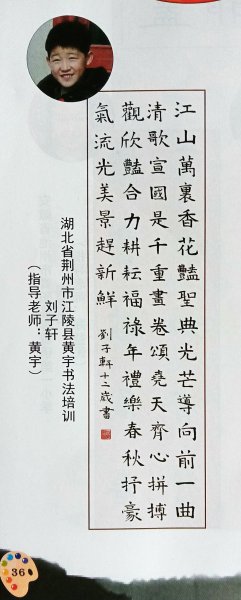 江山萬裏香花豔聖典光芒導向前一曲
清歌宣國是千重畫卷頌堯天齊心拼搏
觀欣豔合力耕耘福祿年禮樂春秋抒豪
氣流光美景趕新鮮 劉子軒十二歲書
湖北省荆州市江陵县黄宇书法培训
刘子轩
（指导老师：黄宇）
36